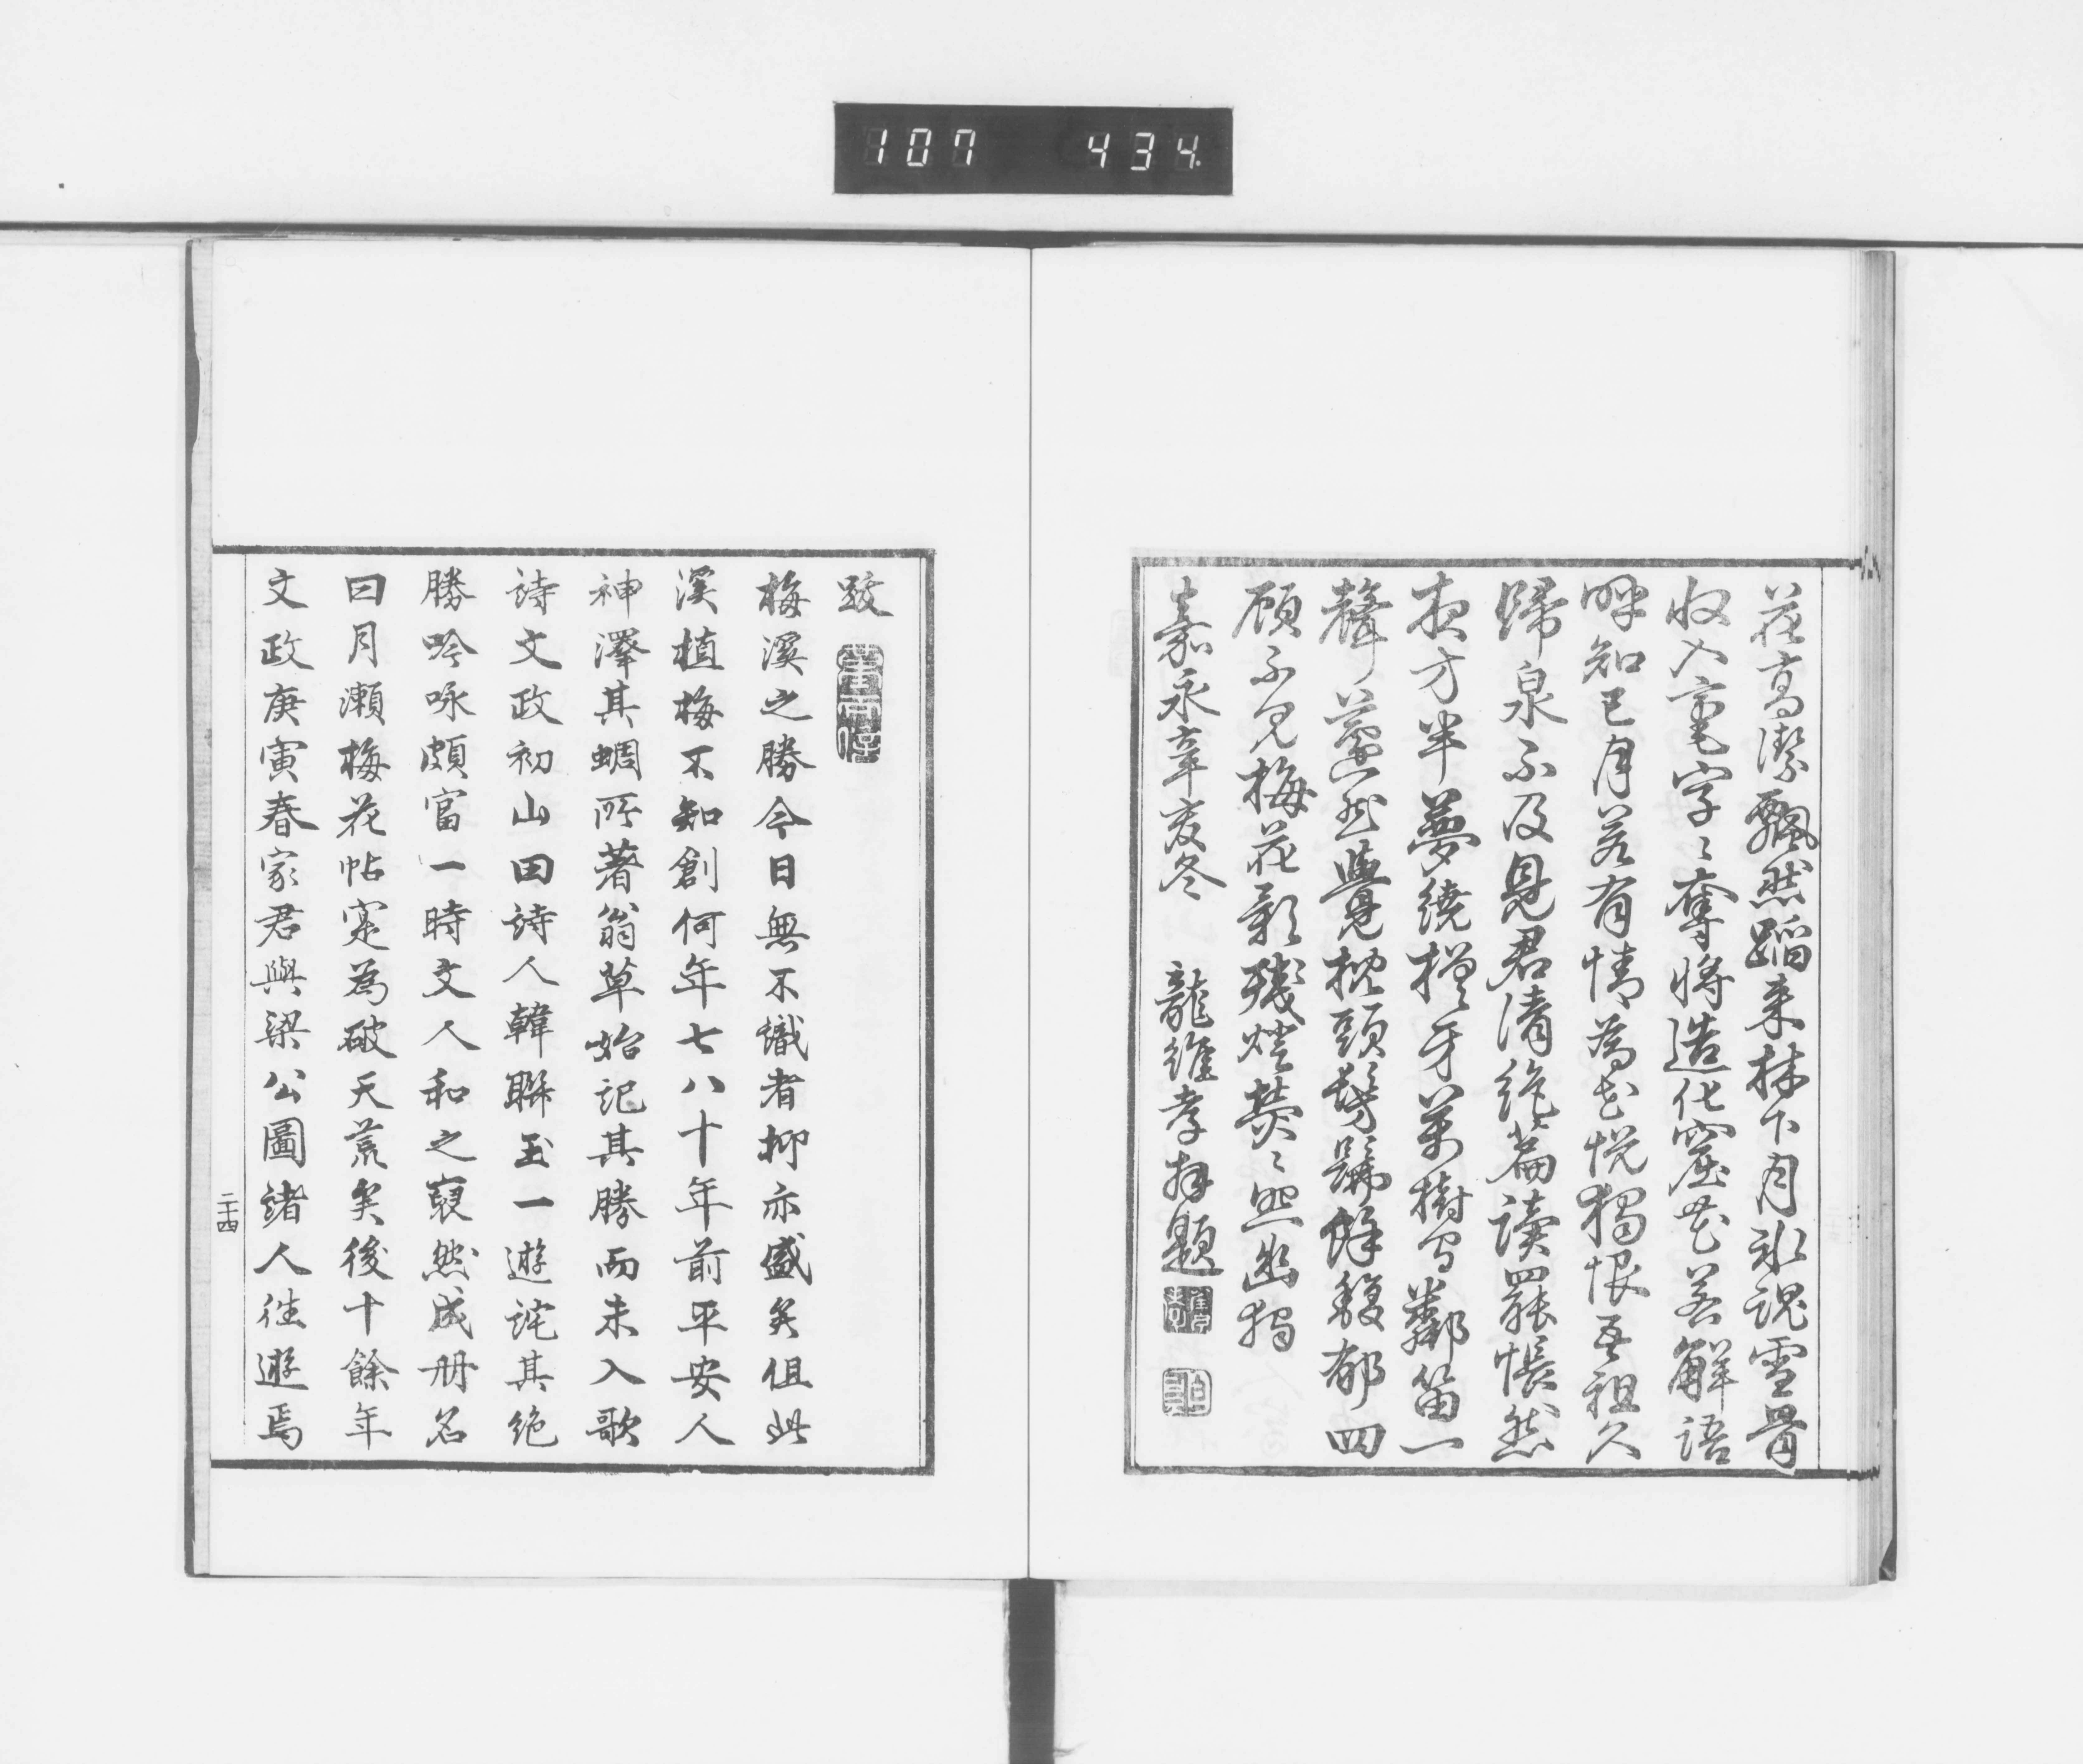 107 434
花高潔飄然蹈来林下月氷魂雪骨
収入毫字〻奪将造化窟花若解語
呼知己月若有情為君悦獨恨吾祖久
歸泉不及見君清絶篇讀罷悵然
夜方半夢繞槎牙萬樹 鄰笛一
聲蘧然覺枕頭髣髴餘馥郁四
顧不見梅花影殘燈熒〻照幽獨
嘉永辛亥冬 龍維孝拜題
跋
梅溪之勝今日無不識者抑亦盛矣但此
溪植梅不知創何年七八十年前平安人
神澤其蜩所著翁草始記其勝而未入歌
詩文政初山田詩人韓聯玉一遊詫其絶
勝吟咏頗富一時文人和之裒然成册名
曰月瀬梅花帖寔為破天荒矣後十餘年
文政庚寅春家君與梁公圖諸人徃遊焉
二十四